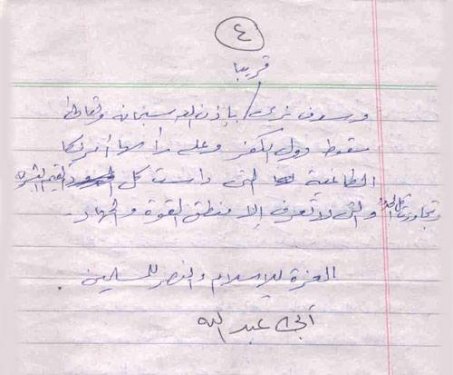 ٤
قريبا
وسوف نرى بإذن الله سبحانه وتعالى
سقوط دول الكفر وعلى رأسها أمريكا
الطاغية التي داست كل القيم البشرية
وتجاوزت والتي لا تعرف إلا منطق القوة والجهاد.
العزة للإسلام والنصر للمسلمين
أبي عبد الله